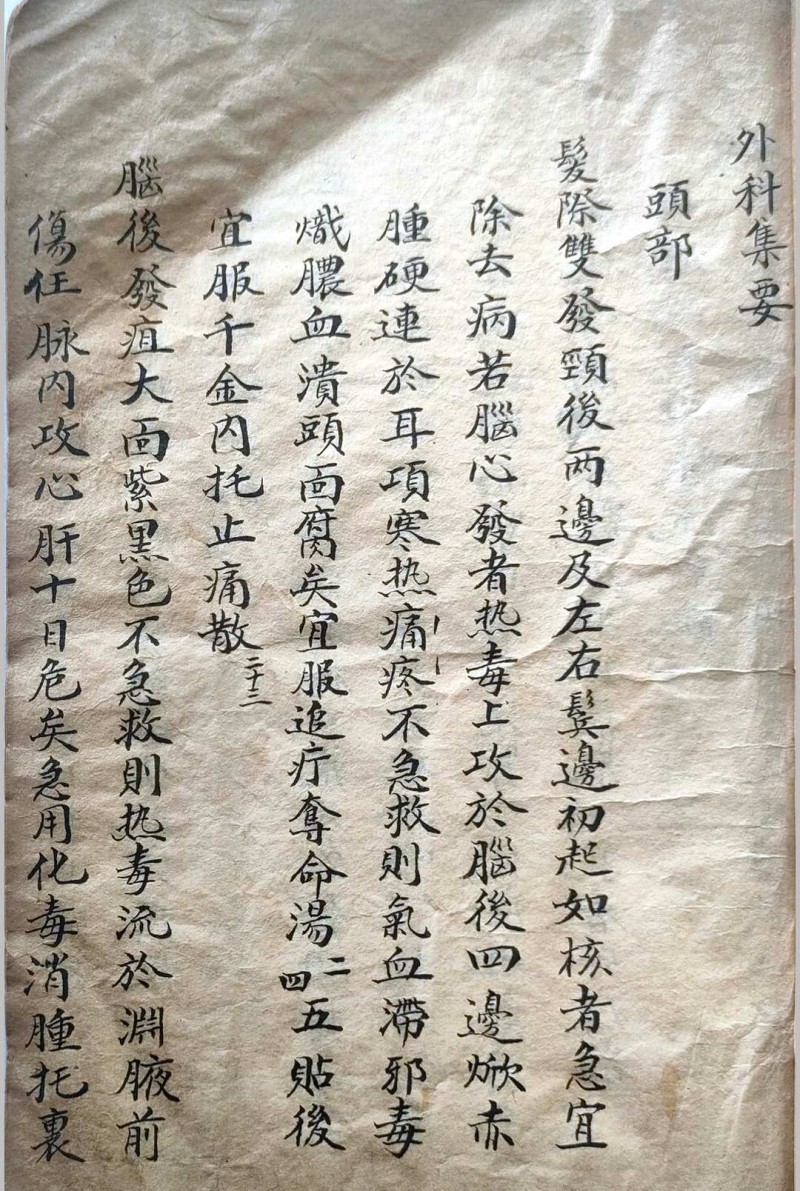 外科集要
頭部
髮際雙發頸後两邊及左右鬓邊初起如核者急宜
除去病若腦心發者热毒上攻於腦後四邊焮赤
腫硬連於耳項寒热痛疼不急救則氣血滯邪毒
熾膿血潰頭面腐矣宜服追疔奪命湯二四五貼後
宜服千金内托止痛散二十三
腦後發疽大面紫黑色不急救則热毒流於淵腋前
傷任脉内攻心肝十日危矣急用化毒消腫托裏